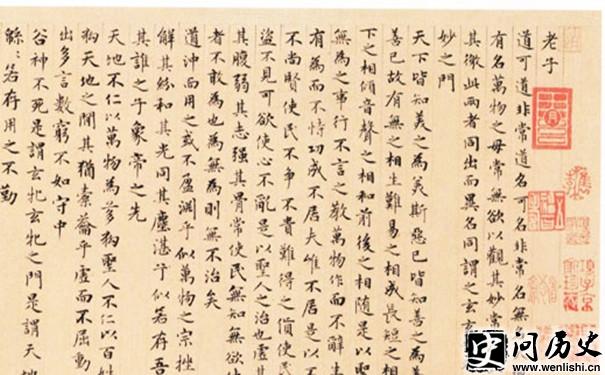 老子
道可道非常道名可名非常名無名
有名萬物之母常無欲以觀其妙常
其徼此兩者同出而異名同謂之玄玄
妙之門
天下皆知美之為美斯惡已皆知善之為善
善已故有無之相生難易之相成長短之相
下之相傾音聲之相和前後之相隨是以聖
無為之事行不言之教萬物作而不辭生
有為而不恃功成不居夫惟不居是以不
不尚賢使民不爭不貴難得之貨使民
盜不見可欲使心不亂是以聖人之治也虛其
其腹弱其志强其骨常使民無知無欲使
者不敢為也為無為則無不治矣
道沖而用之或不盈淵乎似萬物之宗挫
解其紛和其光同其塵湛乎似若存吾
其誰之子象帝之先
天地不仁以萬物為芻狗聖人不仁以百姓
狗天地之間其猶橐籥乎虛而不屈動
出多言數窮不如守中
谷神不死是謂玄牝玄牝之門是謂天地
緜〻若存用之不勤
问历史
www.wenlishi.cn